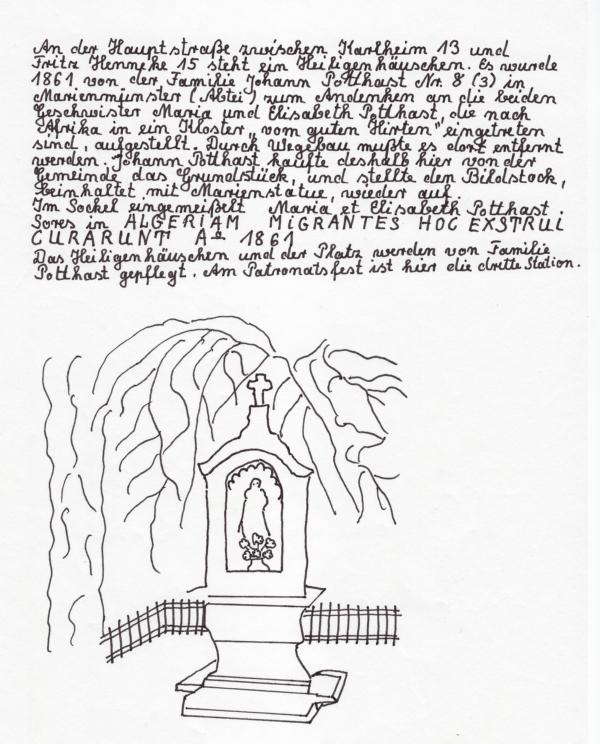 An der Hauptstraße zwischen Karlheim 13 und
Fritz Henneke 15 steht ein Heiligenhäuschen. Es wurde
1861 von der Familie Johann Potthast Nr. 8 (3) in
Marienmünster (Abtei) zum Andenken an die beiden
Geschwister Maria und Elisabeth Potthast, die nach
Afrika in ein Kloster „vom guten Hirten" eingetreten
sind, aufgestellt. Durch Wegebau mußte es dort entfernt
werden. Johann Potthast kaufte deshalb hier von der
Gemeinde das Grundstück, und stellte den Bildstock,
beinhaltet mit Marienstatue, wieder auf.
Im Sockel eingemeißelt Maria et Elisabeth Potthast.
Sores in ALGERIAM MiGRANTES HOC EXSTRUI
CURARUNT Ao 1861
Das Heiligenhäuschen und der Platz werden von Familie
Potthast gepflegt. Am Patronatsfest ist hier die dritte Station.